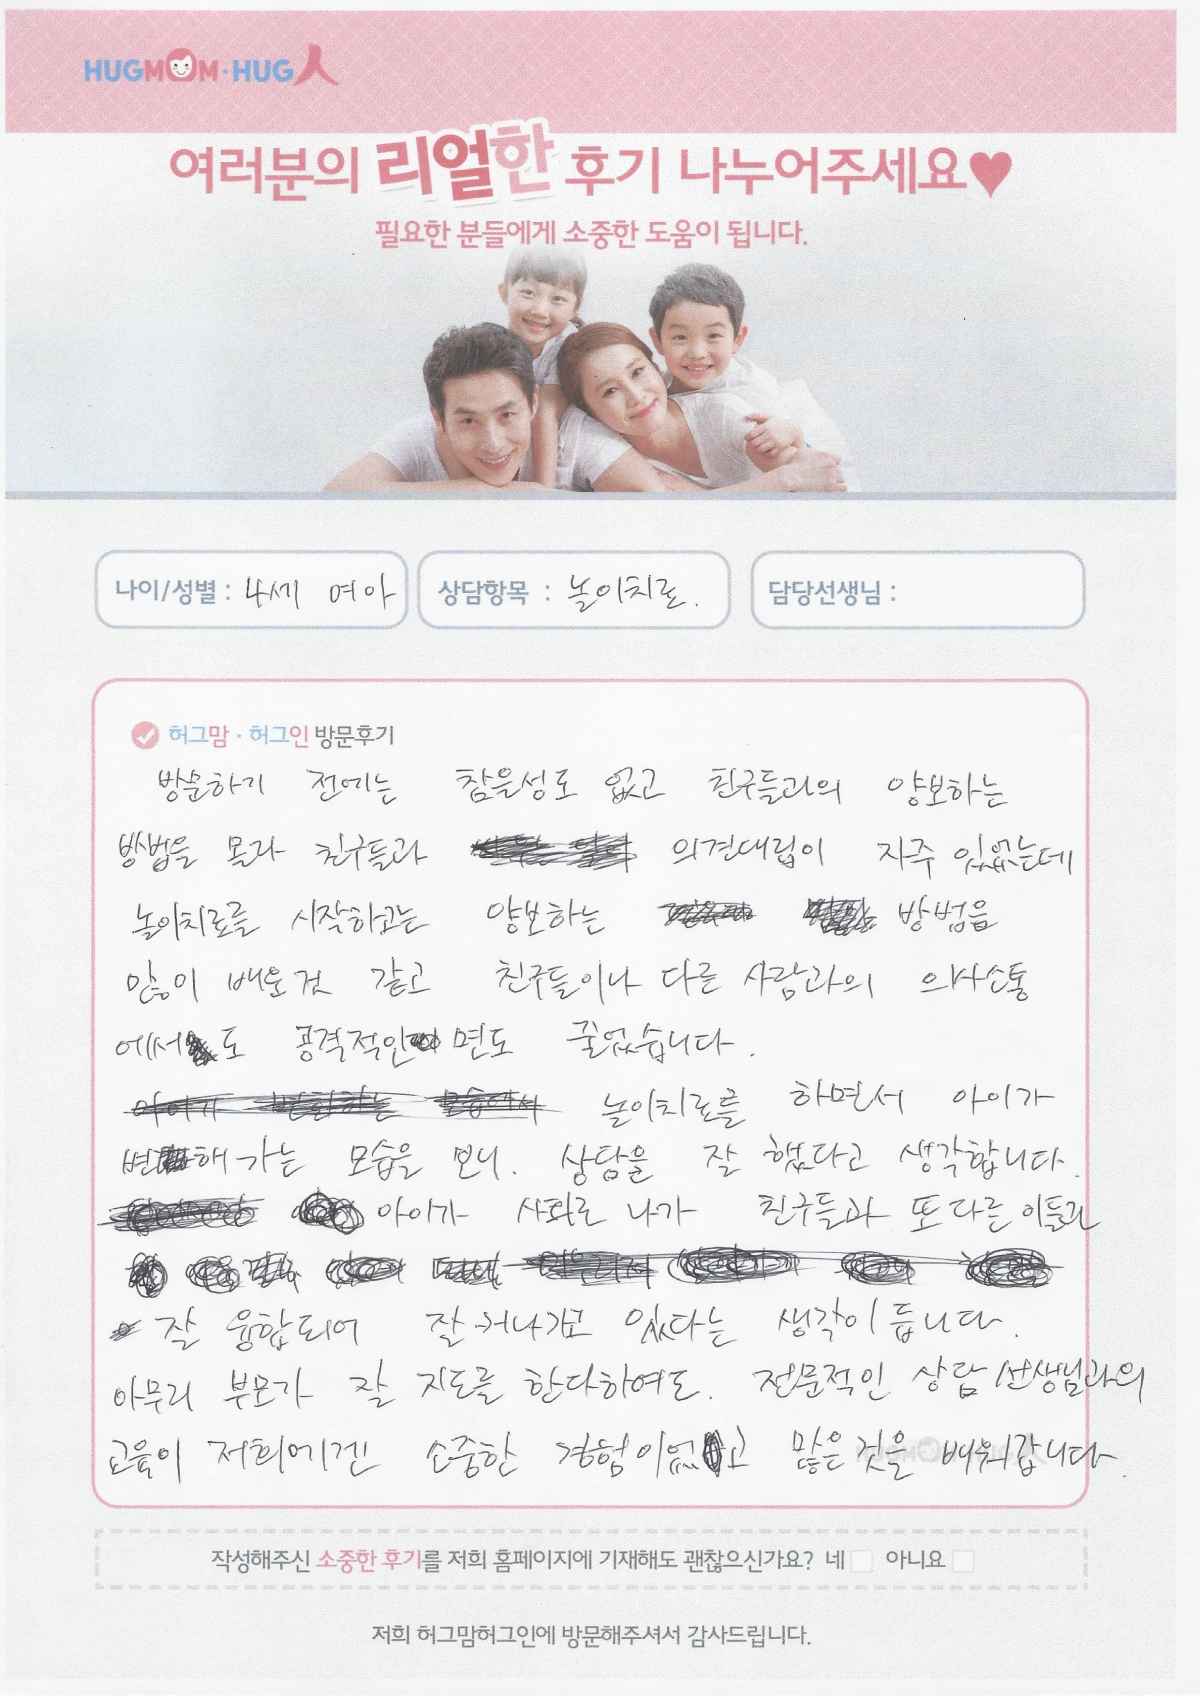 HUGMOM·HUG人
여러분의 리얼한 후기 나누어주세요♥
필요한 분들에게 소중한 도움이 됩니다.
나이/성별 : 4세 여아
상담항목 : 놀이치료.
담당선생님 :
허그맘·허그인 방문후기
방문하기 전에는 참을성도 없고 친구들과의 양보하는
방법을 몰라 친구들과 의견대립이 자주 있었는데
놀이치료를 시작하고는 양보하는 방법을
많이 배운것 같고 친구들이나 다른 사람과의 의사소통
에서도 공격적인 면도 줄었습니다.
놀이치료를 하면서 아이가
변해가는 모습을 보니. 상담을 잘 했다고 생각합니다.
아이가 사회로 나가 친구들과 또다른 이들과
잘 융합되어 잘 커나가고 있다는 생각이 듭니다.
아무리 부모가 잘 지도를 한다하여도. 전문적인 상담 선생님과의
교육이 저희에겐 소중한 경험이었고 많은것을 배워갑니다.
작성해주신 소중한 후기를 저희 홈페이지에 기재해도 괜찮으신가요? 네 아니요
저희 허그맘허그인에 방문해주셔서 감사드립니다.